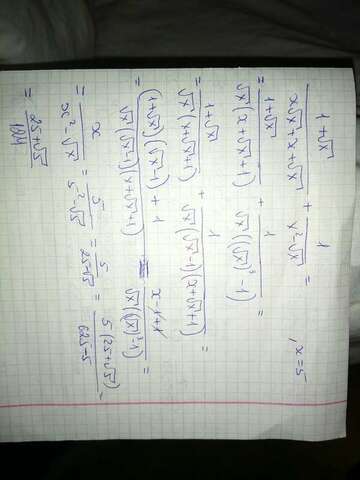 (1+√x)/(x√x+x+√x) + 1/(x²-√x) = x=5
= (1+√x)/(√x(x+√x+1)) + 1/(√x((√x)³-1)) =
= (1+√x)/(√x(x+√x+1)) + 1/(√x(√x-1)(x+√x+1)) =
= ((1+√x)(√x-1)+1)/(√x(√x-1)(x+√x+1)) = (x-1+1)/(√x((√x)³-1)) =
= x/(x²-√x) = 5/(5²-√5) = 5/(25-√5) = 5(25+√5)/(625-5) =
= (25+√5)/124